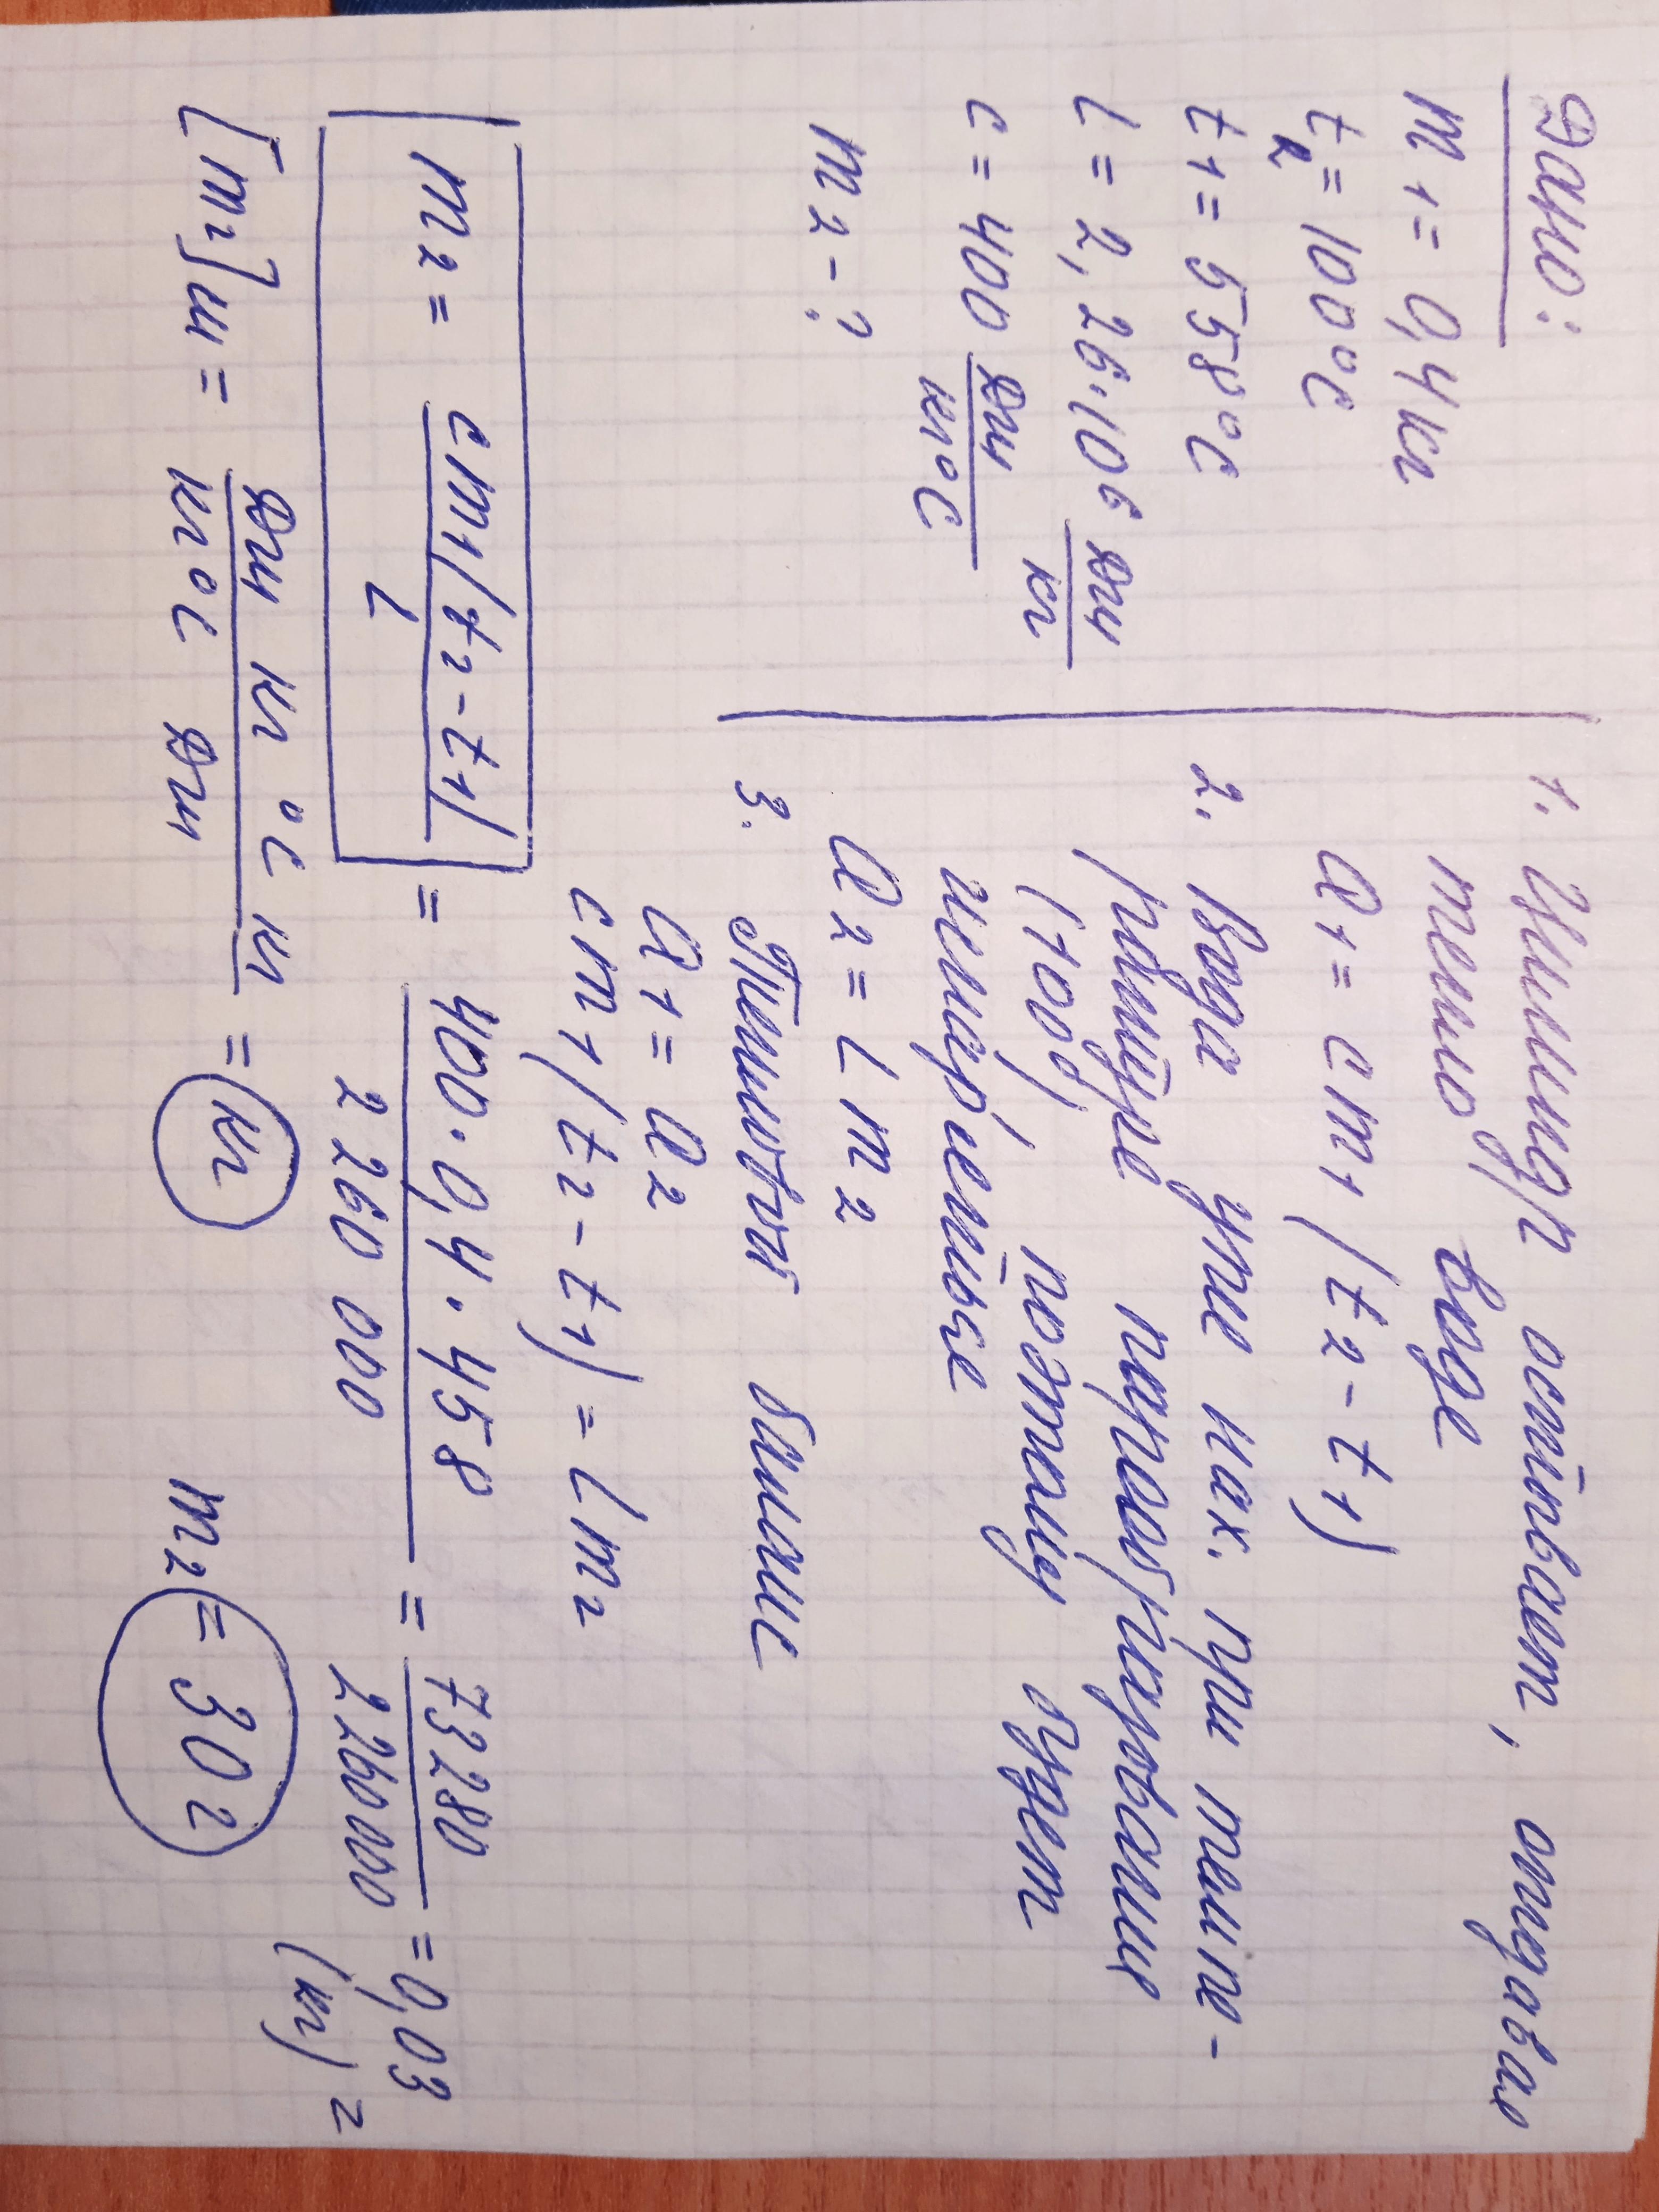 Дано:
m₁ = 0,4 кг
t₂ = 100°C
t₁ = 558°C
L = 2,26·10⁶ Дж/кг
c = 400 Дж/кг°C
m₂ - ?
1. Цилиндр остывает, отдавая
тепло воде
Q₁ = cm₁(t₂ - t₁)
2. Вода уже нах. при темпе-
ратуре парообразования
(100°) поэтому будет
испаряться
Q₂ = L m₂
3. Тепловой баланс
Q₁ = Q₂
cm₁(t₂ - t₁) = L m₂
m₂ = cm₁(t₂ - t₁)/L = 400·0,4·458/2 260 000 = 73280/2260000 = 0,03
(кг) =
[m₂]си = Дж кг °C кг/кг°C Дж = кг m₂ = 30 г